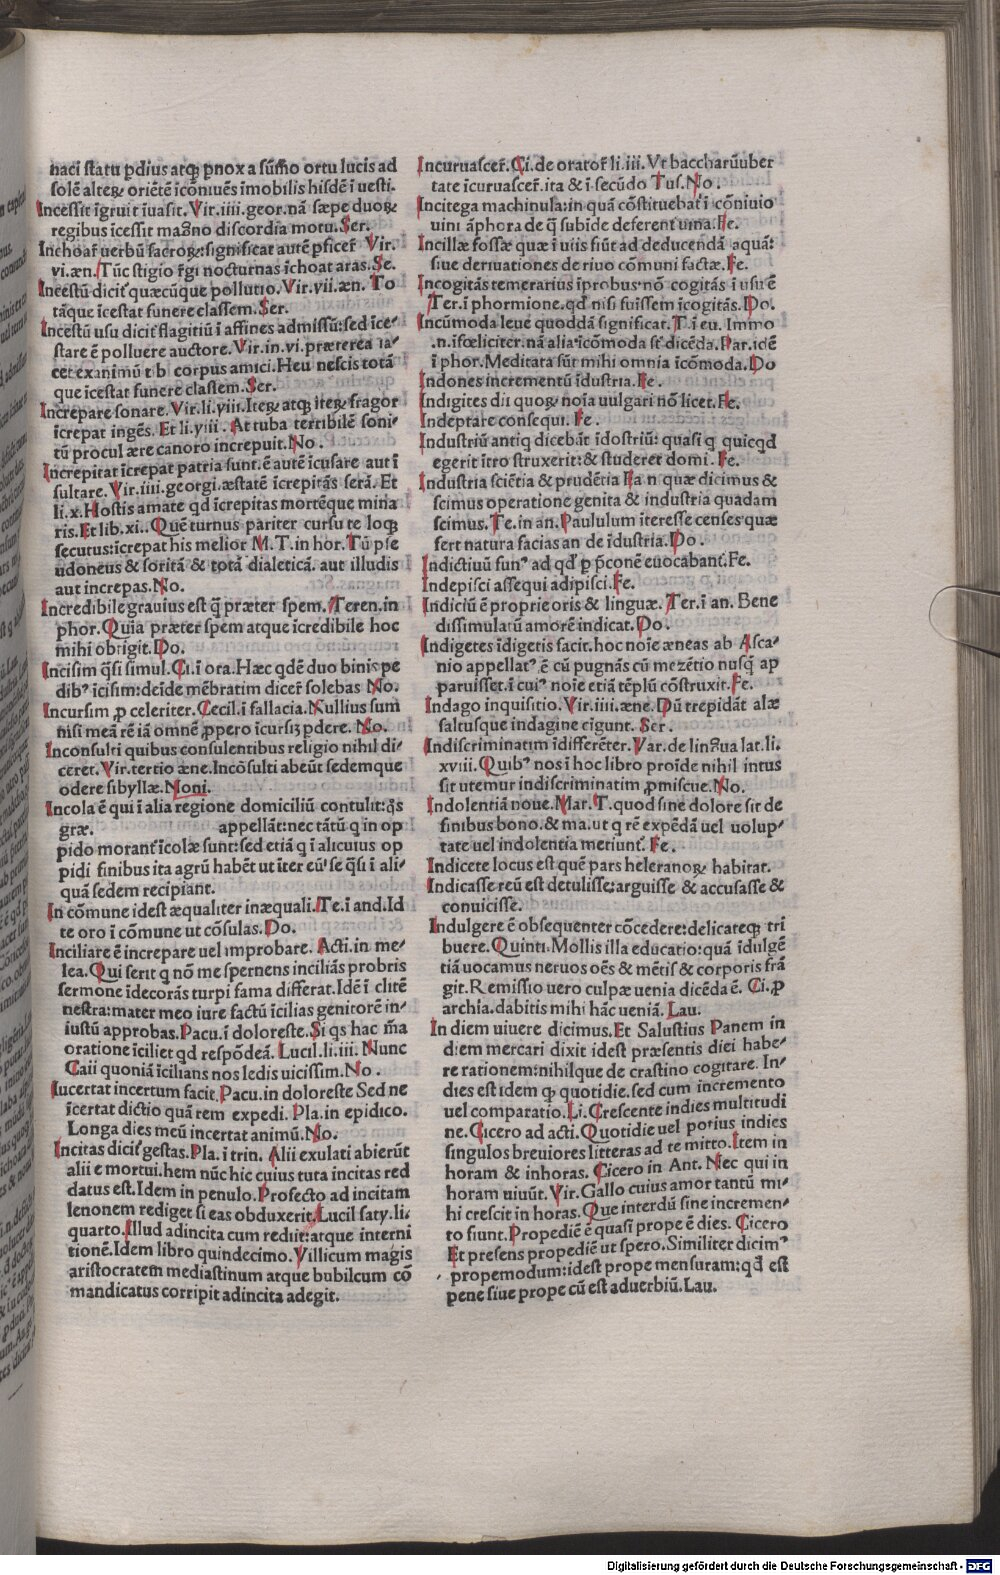 naci statu pdius atqȝ pnox a sūmo ortu lucis ad
solē alteꝝ oriētē īcōniuēs īmobilis hisdē ī uesti.
Incessit īgruit īuasit. Vir. iiii. geor. nā sæpe duoꝝ
regibus īcessit magno discordia motu. Ser.
Inchoar̄ uerbū sacroꝝ: significat autē pficer̄ Vir.
vi. æn. Tūc stigio r̄gi nocturnas īchoat aras. Se.
Incestū dicit̄ quæcūque pollutio. Vir. vii. æn. To
tāque īcestat funere classem. Ser.
Incestū usu dicit̄ flagitiū ī affines admissū: sed īce⸗
stare ē polluere auctore. Vir. in. vi. præterea ia⸗
cet exanimū tibi corpus amici. Heu nescis totā
que īcestat funere classem. Ser.
Increpare sonare. Vir. li. viii. Iteꝝ atqȝ iteꝝ fragor
īcrepat ingēs. Et li. viii. At tuba terribilē soni⸗
tū procul ære canoro increpuit. No.
Increpitat īcrepat patria sunt. ē autē īcusare aut ī
sultare. Vir. iiii. georgi. æstatē īcrepitās serā. Et
li. x. Hostis amate qd īcrepitas mortēque mina
ris. Et lib. xi.. Quē turnus pariter cursu te loqȝ
secutus: īcrepat his melior M. T. in hor. Tū pse
udoneus & soritā & totā dialeticā. aut illudis
aut increpas. No.
Incredibile grauius est q̄ præter spem. Teren. in
phor. Quia præter spem atque īcredibile hoc
mihi obrigit. Do.
Incisim q̄si simul. Ci. ī ora. Hæc qdē duo binis pe
dibꝰ īcisim: deīde mēbratim dicer̄ solebas No.
Incursim ꝓ celeriter. Cecil. ī fallacia. Nullius sum
nisi meā rē īā omnē ꝓpero īcursiȝ pdere. No.
Inconsulti quibus consulentibus religio nihil di⸗
ceret. Vir. tertio æne. Incōsulti abeūt sedemque
odere sibyllæ. Noni.
Incola ē qui ī alia regione domiciliū contulit: qs
græ. appellāt: nec tātū q in op
pido morant̄ īcolæ sunt: sed etiā q ī alicuius op
pidi finibus ita agrū habēt ut īter eū se q̄si ī ali⸗
quā sedem recipiant.
In cōmune idest æqualiter inæquali. Te. ī and. Id
te oro ī cōmune ut cōsulas. Do.
Inciliare ē increpare uel improbare. Acti. in me⸗
lea. Qui serit q nō me spernens inciliās probris
sermone īdecorās turpi fama differat. Idē ī clitē
nestra: mater meo iure factū īcilias genitorē in⸗
iustū approbas. Pacu. ī doloreste. Si qs hac m̄a
oratione īciliet qd respōdeā. Lucil. li. iii. Nunc
Caii quoniā īcilians nos ledis uicissim. No.
Iucertat incertum facit. Pacu. in doloreste Sed ne
īcertat dictio quā rem expedi. Pla. in epidico.
Longa dies meū incertat animū. No.
Incitas dicit̄ gestas. Pla. ī trin. Alii exulati abierūt
alii e mortui. hem nūc hic cuius tuta incitas red
datus est. Idem in penulo. Profecto ad incitam
lenonem rediget si eas obduxerit. Lucil saty. li.
quarto. Illud adincita cum rediit: atque interni
tionē. Idem libro quindecimo. Villicum magis
aristocratem mediastinum atque bubilcum cō
mandicatus corripit adincita adegit.
Incuruascer̄. Ci. de orator̄ li. iii. Vt baccharū uber
tate īcuruascer̄. ita & ī secūdo Tus. No.
Incitega machinula: in quā cōstituebat̄ ī coniuio
uini āphora de q̄ subide deferent̄ uina. Fe.
Incillæ fossæ quæ ī uiis fiūt ad deducendā aquā:
siue deriuationes de riuo cōmuni factæ. Fe.
Incogitās temerarius īprobus: nō cogitās ī usu ē
Ter. ī phormione. qd nisi fuissem īcogitās. Do.
Incūmoda leue quoddā significat. T. ī eu. Immo
.n. īfœliciter. nā alia īcōmoda st̄ dicēda. Par. idē
ī phor. Meditata sūt mihi omnia īcōmoda. Do
Indones incrementū īdustria. Fe.
Indigites dii quoꝝ noīa uulgari nō licet. Fe.
Indeptare consequi. Fe.
Industriū antiq dicebāt īdostriū: quasi q quicqd
egerit itro struxerit: & studeret domi. Fe.
Industria sciētia & prudētia Fa n quæ dicimus &
scimus operatione genita & industria quadam
scimus. Te. in an. Paululum īteresse censes quæ
fert natura facias an de īdustria. Do.
Indictiuū funꝰ ad qd ꝓ pconē euocabant. Fe.
Indepisci assequi adipisci. Fe.
Indiciū ē proprie oris & linguæ. Ter. ī an. Bene
dissimulatū amorē indicat. Do.
Indigetes īdigetis facit. hoc noīe æneas ab Asca⸗
nio appellatꝰ ē cū pugnās cū mezētio nusq̄ ap
paruisset. ī cuiꝰ noīe etiā tēplū cōstruxit. Fe.
Indago inquisitio. Vir. iiii. æne. Dū trepidāt alæ
saltusque indagine cigunt. Ser.
Indiscriminatim īdifferēter. Var. de lingua lat. li.
xviii. Quibꝰ nos ī hoc libro proīde nihil intus
sit utemur indiscriminatim ꝓmiscue. No.
Indolentiā noue. Mar. T. quod sine dolore sit de
finibus bono. & ma. ut q rē expēdā uel uolup⸗
tate uel indolentia metiunt̄. Fe.
Indicete locus est quē pars heleranoꝝ habitat.
Indicasse reū est detulisse: arguisse & accusasse &
conuicisse.
Indulgere ē obsequenter cōcedere: delicateqȝ tri
buere. Quinti. Mollis illa educatio: quā īdulgē
tiā uocamus neruos oēs & mētis & corporis frā
git. Remissio uero culpæ uenia dicēda ē. Ci. ꝓ
archia. dabitis mihi hāc ueniā. Lau.
In diem uiuere dicimus. Et Salustius Panem in
diem mercari dixit idest præsentis diei habe⸗
re rationem: nihilque de crastino cogitare. In⸗
dies est idem qȝ quotidie. sed cum incremento
uel comparatio. Li. Crescente indies multitudi
ne. Cicero ad acti. Quotidie uel potius indies
singulos breuiores litteras ad te mitto. Item in
horam & inhoras. Cicero in Ant. Nec qui in
horam uiuūt. Vir. Gallo cuius amor tantū mi⸗
hi crescit in horas. Que interdū sine incremen⸗
to fiunt. Propediē ē quasi prope ē dies. Cicero
Et presens propediē ut spero. Similiter dicimꝰ
propemodum: idest prope mensuram: qd est
pene siue prope cū est aduerbiū. Lau.
Digitalisierung gefördert durch die Deutsche Forschungsgemeinschaft - DFG